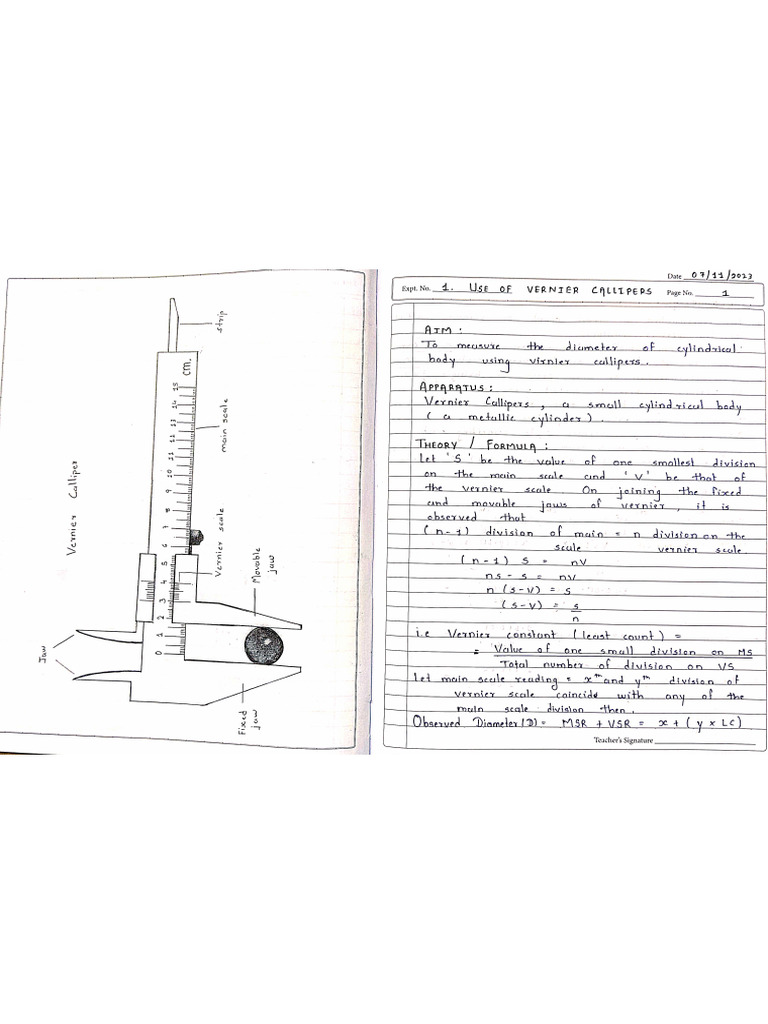 Vernier Calliper
strip
cm.
15
14
13
12
11
10
9
8
7
6
5
4
3
2
1
0
main scale
Vernier scale
Movable
jaw
Jaw
Fixed
jaw
Date 07/11/2023
Expt. No. 1. USE OF VERNIER CALLIPERS Page No. 1
AIM :
To measure the diameter of cylindrical
body using virnier callipers.
APPARATUS :
Vernier Callipers, a small cylindrical body
( a metallic cylinder ).
THEORY / FORMULA :
Let 'S' be the value of one smallest division
on the main scale and 'V' be that of
the vernier scale. On joining the fixed
and movable jaws of vernier, it is
observed that
( n-1 ) division of main = n division on the
scale vernier scale.
( n-1 ) S = nV
ns - s = nV
n (s-v) = s
(s-v) = s
n
i.e Vernier constant (least count) =
= Value of one small division on MS
Total number of division on VS
Let main scale reading = xth and yth division of
vernier scale coincide with any of the
main scale division then.
Observed Diameter (D) = MSR + VSR = x + ( y x LC )
Teacher's Signature